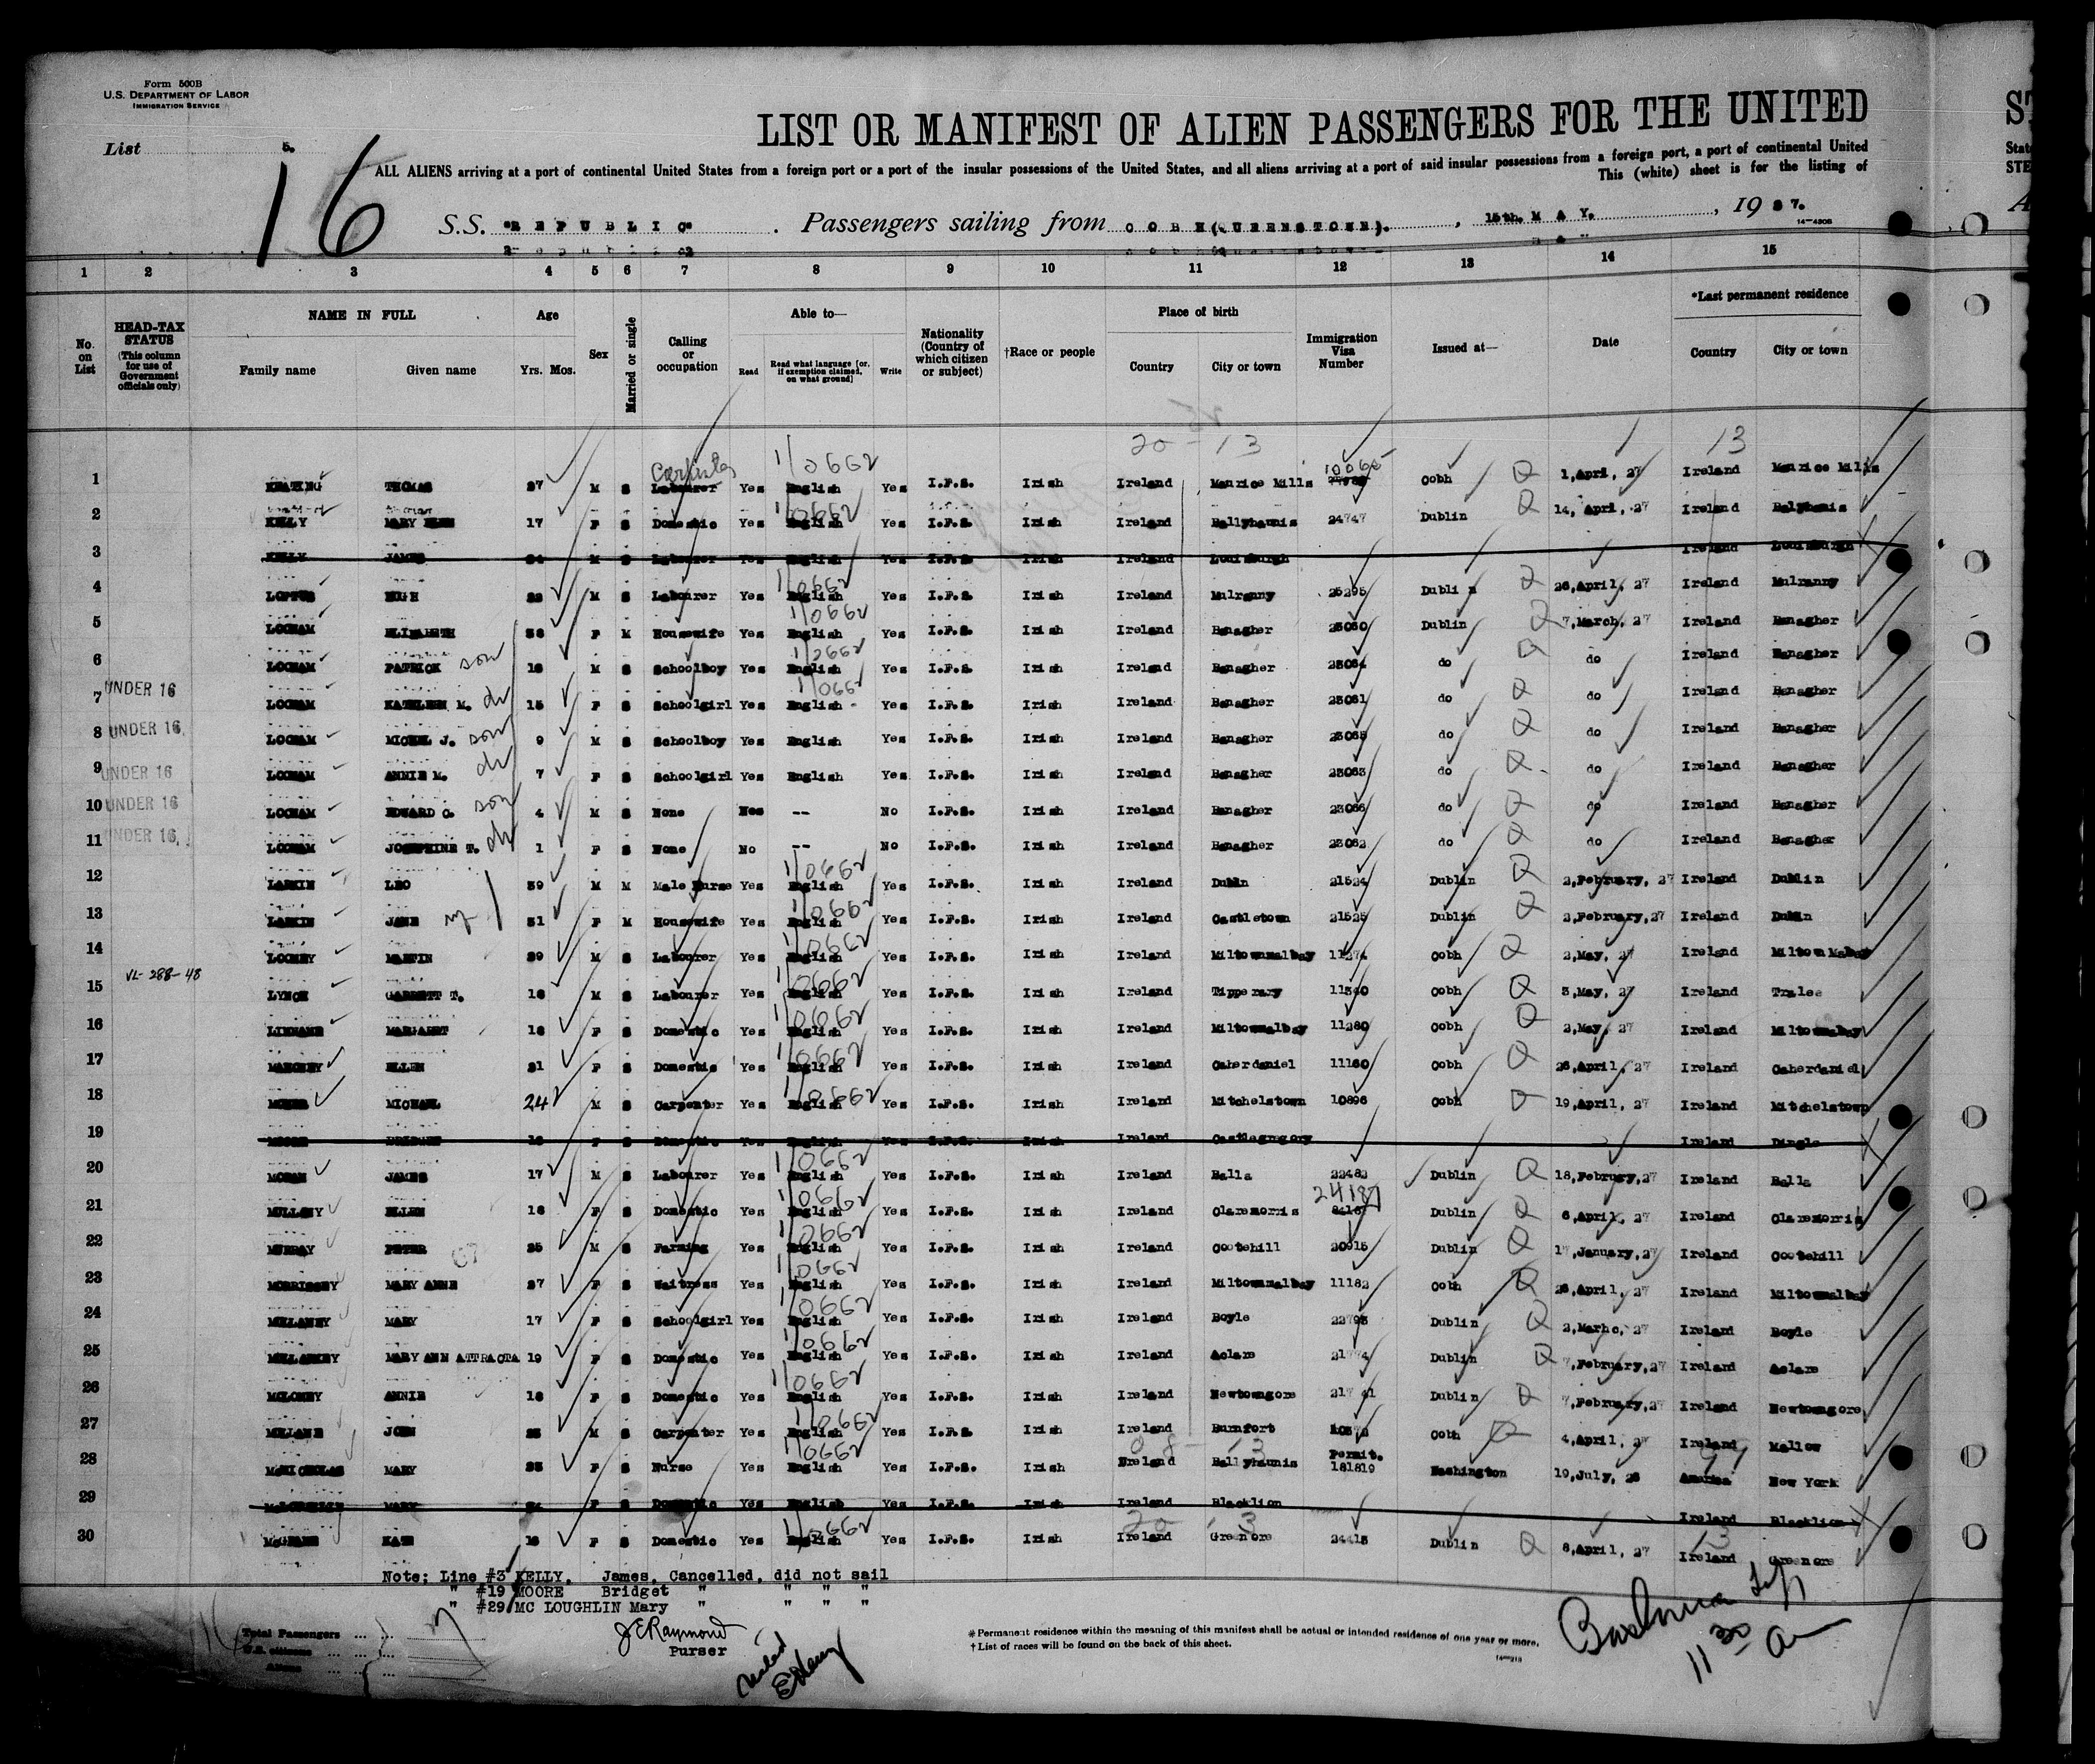 Form 500B
U.S. DEPARTMENT OF LABOR
IMMIGRATION SERVICE
List 5.
16
LIST OR MANIFEST OF ALIEN PASSENGERS FOR THE UNITED
ALL ALIENS arriving at a port of continental United States from a foreign port or a port of the insular possessions of the United States, and all aliens arriving at a port of said insular possessions from a foreign port, a port of continental United
This (white) sheet is for the listing of
S.S. "REPUBLIC" . Passengers sailing from COBH (QUEENSTOWN). , 15th. MAY. , 1927.
1 2 3 4 5 6 7 8 9 10 11 12 13 14 15
No. on List
HEAD-TAX STATUS (This column for use of Government officials only)
NAME IN FULL Family name Given name
Age Yrs. Mos.
Sex
Married or single
Calling or occupation
Able to— Read Read what language [or, if exemption claimed, on what ground] Write
Nationality (Country of which citizen or subject)
†Race or people
Place of birth Country City or town
Immigration Visa Number
Issued at—
Date
*Last permanent residence Country City or town
20 - 13 13
1 KEATING THOMAS 27 M S Labourer Yes English Yes I.F.S. Irish Ireland Maurice Mills 10065 Cobh 1,April, 27 Ireland Maurice Mills
2 KELLY MARY ELLEN 17 F S Domestic Yes English Yes I.F.S. Irish Ireland Ballyhaunis 24747 Dublin 14, April, 27 Ireland
3 KELLY JAMES M S Labourer Yes English Yes I.F.S. Irish Ireland Louisburgh Ireland Louisburgh
4 LOFTUS HUGH M S Labourer Yes English Yes I.F.S. Irish Ireland Mulranny 25295 Dublin 26,April, 27 Ireland Mulranny
5 LOONAM ELIZABETH 38 F M Housewife Yes English Yes I.F.S. Irish Ireland Banagher 23060 Dublin 7,March, 27 Ireland Banagher
6 LOONAM PATRICK son 16 M S Schoolboy Yes English Yes I.F.S. Irish Ireland Banagher 23064 do do Ireland Banagher
7 UNDER 16 LOONAM KATHLEEN M. dr 15 F S Schoolgirl Yes English Yes I.F.S. Irish Ireland Banagher 23061 do do Ireland Banagher
8 UNDER 16 LOONAM MICHAEL J. son 9 M S Schoolboy Yes English Yes I.F.S. Irish Ireland Banagher 23065 do do Ireland Banagher
9 UNDER 16 LOONAM ANNIE M. dr 7 F S Schoolgirl Yes English Yes I.F.S. Irish Ireland Banagher 23063 do do Ireland Banagher
10 UNDER 16 LOONAM EDWARD C. son 4 M S None -- No I.F.S. Irish Ireland Banagher 23066 do do Ireland Banagher
11 UNDER 16 LOONAM JOSEPHINE T. dr 1 F S None No -- No I.F.S. Irish Ireland Banagher 23062 do do Ireland Banagher
12 LARKIN LEO 39 M M Male Nurse Yes English Yes I.F.S. Irish Ireland Dublin 21524 Dublin 2,February, 27 Ireland Dublin
13 LARKIN JANE 31 F M Housewife Yes English Yes I.F.S. Irish Ireland Castletown 21525 Dublin 2,February,27 Ireland Dublin
14 LOONEY MARTIN M S Labourer Yes English Yes I.F.S. Irish Ireland Miltownmalbay 11274 Cobh 2,May, 27 Ireland
VL-288-48
15 LYNCH GARRETT T. 18 M S Labourer Yes English Yes I.F.S. Irish Ireland Tipperary 11340 Cobh 3,May, 27 Ireland Tralee
16 LINNANE MARGARET 18 F S Domestic Yes English Yes I.F.S. Irish Ireland Miltownmalbay 11280 Cobh 2,May, 27 Ireland Miltownmalbay
17 MAHONEY ELLEN 21 F S Domestic Yes English Yes I.F.S. Irish Ireland Caherdaniel 11160 Cobh 26,April, 27 Ireland Caherdaniel
18 MICHAEL 24 M S Carpenter Yes English Yes I.F.S. Irish Ireland Mitchelstown 10896 Cobh 19,April, 27 Ireland Mitchelstown
19 MOORE BRIDGET 18 F S Domestic Yes English Yes I.F.S. Irish Ireland Castlegregory Ireland Dingle
20 MORAN JAMES 17 M S Labourer Yes English Yes I.F.S. Irish Ireland Balla 22482 Dublin 18,February,27 Ireland Balla
21 ELLEN 18 F S Domestic Yes English Yes I.F.S. Irish Ireland Claremorris 24187 Dublin 6,April, 27 Ireland Claremorris
22 MURRAY PETER 25 M S Farming Yes English Yes I.F.S. Irish Ireland Cootehill 20915 Dublin 17,January,27 Ireland Cootehill
23 MORRISSEY MARY ANNE 27 F S Waitress Yes English Yes I.F.S. Irish Ireland Miltownmalbay 11182 Cobh 26,April, 27 Ireland Miltownmalbay
24 MARY 17 F S Schoolgirl Yes English Yes I.F.S. Irish Ireland Boyle 22793 Dublin 2,Marhc, 27 Ireland Boyle
25 MARY ANN ATTRACTA 19 F S Domestic Yes English Yes I.F.S. Irish Ireland Aclare 21774 Dublin 7,February,27 Ireland Aclare
26 ANNIE 18 F S Domestic Yes English Yes I.F.S. Irish Ireland Newtowngore 21741 Dublin 7,February,27 Ireland Newtowngore
27 JOHN M S Carpenter Yes English Yes I.F.S. Irish Ireland Burnfort Cobh 4,April, 27 Ireland Mallow
28 McNICHOLAS MARY F S Nurse Yes English Yes I.F.S. Irish Ireland Ballyhaunis Permit. 181819 Washington 19,July, 26 America New York
29 McLOUGHLIN MARY F S Domestic Yes English Yes I.F.S. Irish Ireland Blacklion Ireland Blacklion
30 KATE 18 F S Domestic Yes English Yes I.F.S. Irish Ireland Greenore 24415 Dublin 8,April, 27 Ireland Greenore
Note; Line #3 KELLY, James, Cancelled, did not sail
" #19 MOORE Bridget " " " "
" #29 MC LOUGHLIN Mary " " " "
Total Passengers ... ...
U.S. citizens ... ...
Aliens ... ...
J E Raymond
Purser
* Permanent residence within the meaning of this manifest shall be actual or intended residence of one year or more.
† List of races will be found on the back of this sheet.
11 30 a